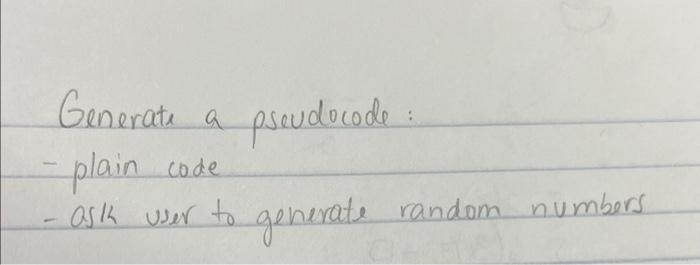 Generate a pseudocode :
- plain code
- ask user to generate random numbers